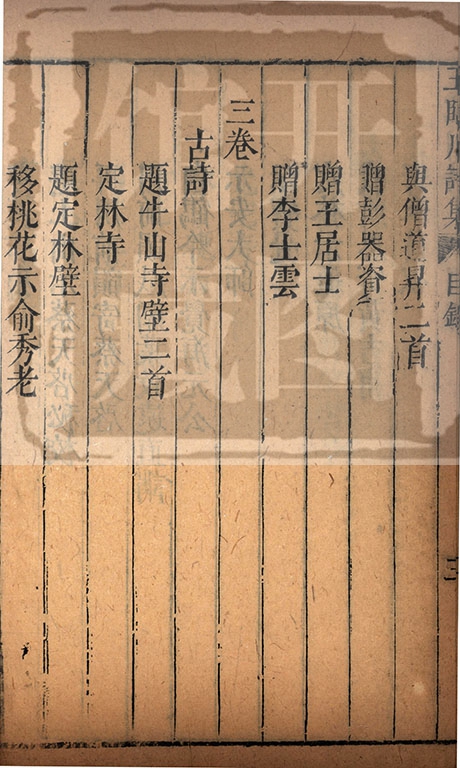 王臨川詩集 目錄 三
與僧道昇二首
贈彭器資
贈王居士
贈李士雲
三卷
古詩
題半山寺壁二首
定林寺
題定林壁
移桃花示俞秀老